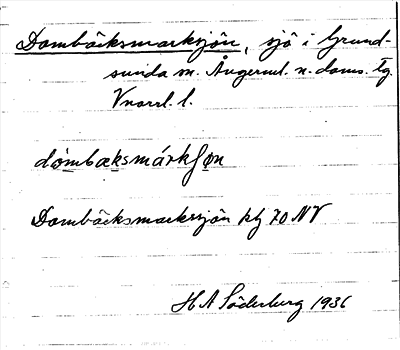 Dombäcksmarksjön, sjö i Grund-
sunda sn. Ångerml. n. doms. tg.
Vnorrl. l.
dòmbæksmárkʃøn
Dombäcksmarksjön ktg 70 NV
H A Söderberg 1936